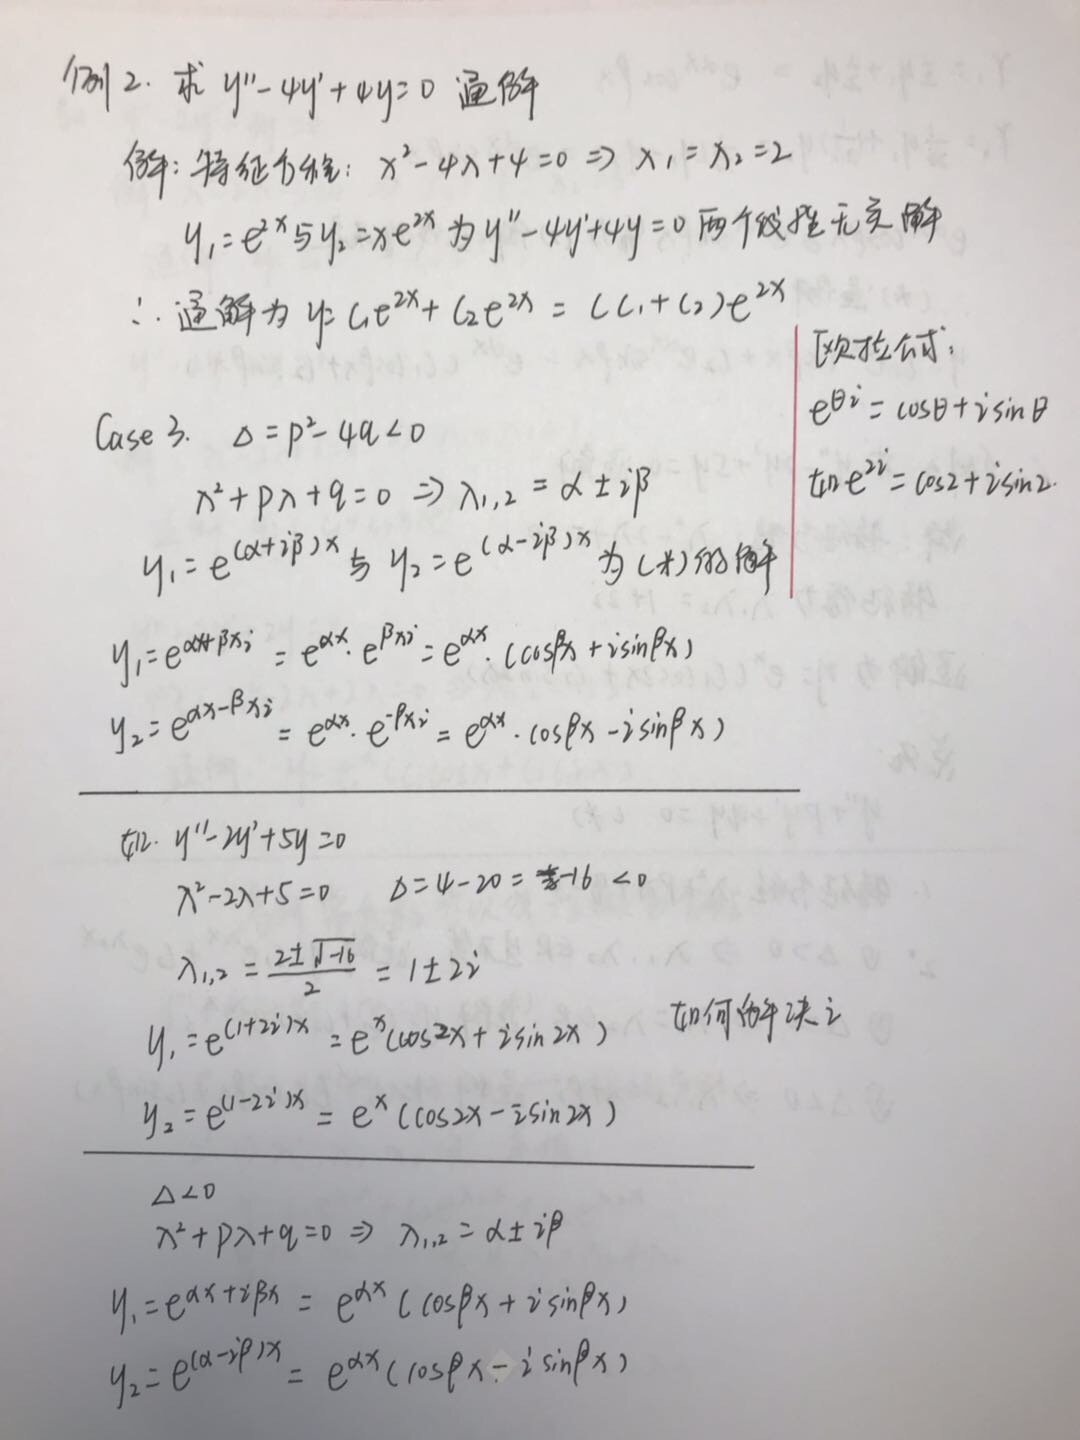 例2. 求 y''-4y'+4y=0 通解
解: 特征方程: λ²-4λ+4=0 ⇒ λ₁=λ₂=2
y₁=e^{2x}与y₂=xe^{2x}为y''-4y'+4y=0两个线性无关解
∴ 通解为 y=C₁e^{2x}+C₂e^{2x}=(C₁+C₂)e^{2x}
欧拉公式:
e^{θi}=cosθ+isinθ
如e^{2i}=cos2+isin2.
Case 3. Δ=p²-4q<0
λ²+pλ+q=0 ⇒ λ₁,₂=α±iβ
y₁=e^{(α+iβ)x}与 y₂=e^{(α-iβ)x}为(*)的解
y₁=e^{αx+βxi}=e^{αx}·e^{βxi}=e^{αx}·(cosβx+isinβx)
y₂=e^{αx-βxi}=e^{αx}·e^{-βxi}=e^{αx}·cosβx-isinβx)
如. y''-2y'+5y=0
λ²-2λ+5=0 Δ=4-20=-16<0
λ₁,₂=\frac{2±√-16}{2}=1±2i
y₁=e^{(1+2i)x}=e^x(cos2x+isin2x) 如何解决i
y₂=e^{(1-2i)x}=e^x(cos2x-isin2x)
Δ<0
λ²+pλ+q=0 ⇒ λ₁,₂=α±iβ
y₁=e^{αx+iβx}=e^{αx}(cosβx+isinβx)
y₂=e^{(α-iβ)x}=e^{αx}(cosβx-isinβx)